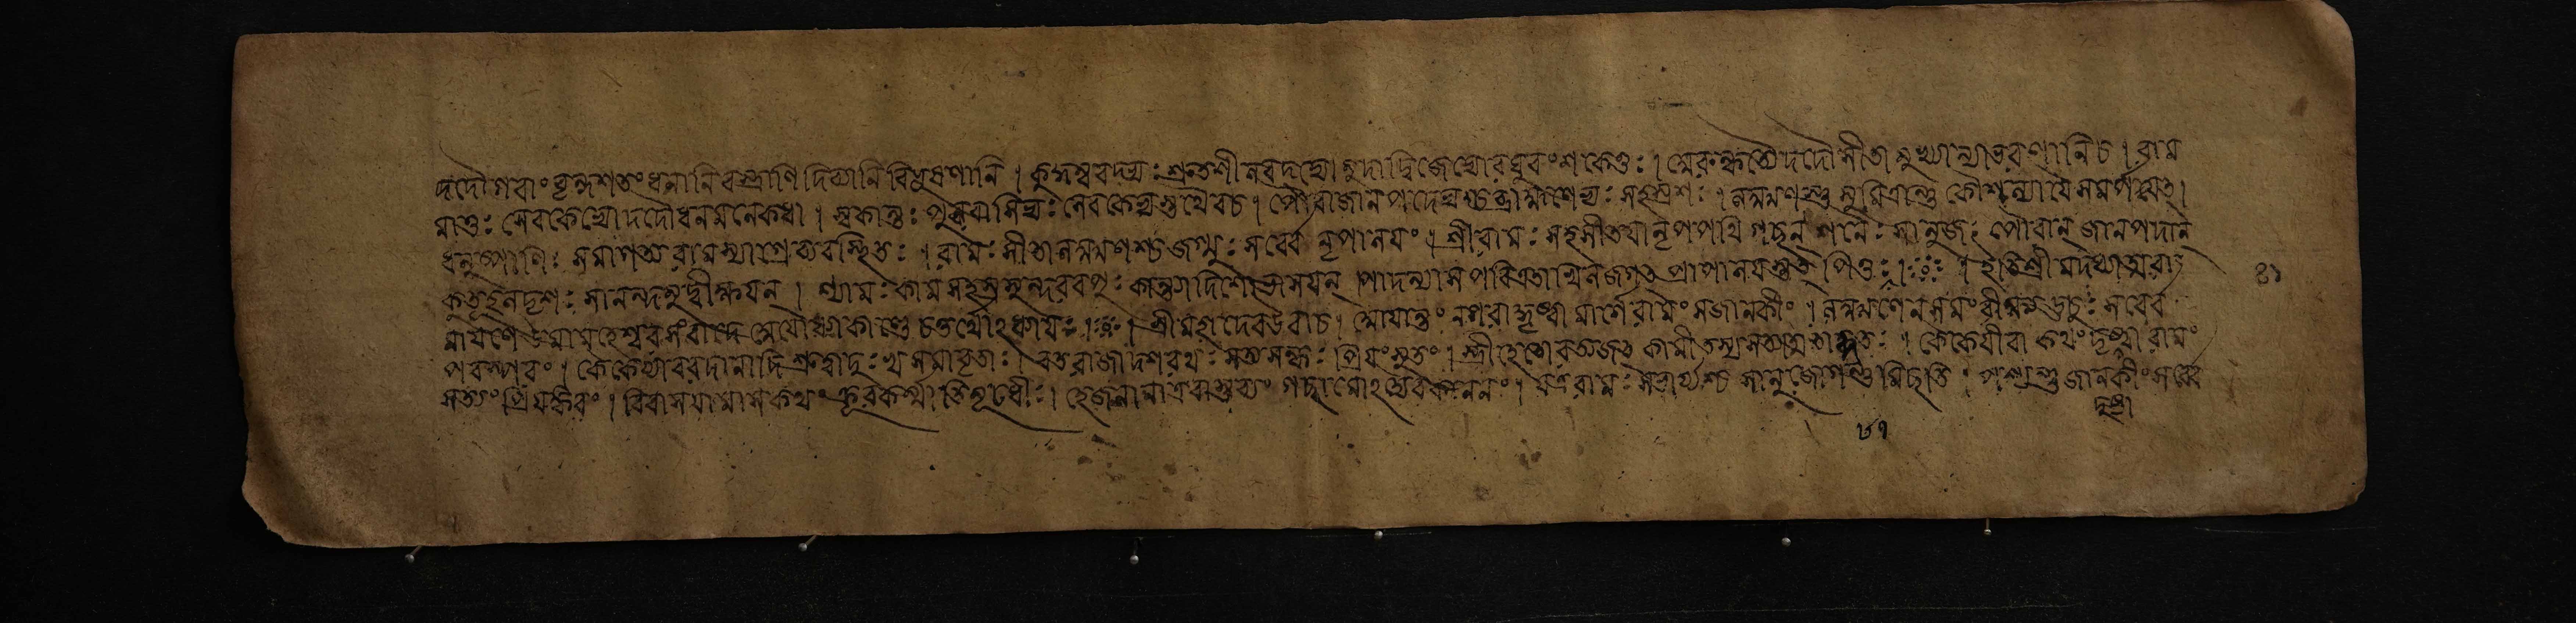 দদৌ গবাং বৃন্দশতং ধনানি বস্ত্রাণি দিব্যানি বিভূষণানি । কুটুম্ববদ্ভ্যঃ শ্রুতশীলবদ্ভ্যো মুদা দ্বিজেভ্যো রঘুবংশকেতুঃ । অরুন্ধত্যৈ দদৌ সীতা মুখ্যান্যাভরণানি চ । রাম
মাতুঃ সেবকেভ্যো দদৌ ধনমনেকধা । স্বকান্তঃ পুরবাসিভ্যঃ সেবকেভ্যস্তথৈব চ । পৌরজানপদেভ্যশ্চ ব্রাহ্মণেভ্যঃ সহস্রশঃ । লক্ষ্মণস্তু সুমিত্রান্তু কৌশল্যায়ৈ সমর্পয়ৎ ।
ধনুষ্পাণিঃ সমাগত্য রামস্যাগ্রে ব্যবস্থিতঃ । রামঃ সীতালক্ষ্মণশ্চ জগ্মুঃ সর্ব্বে নৃপালয়ং । শ্রীরামঃ সহসীতয়া নৃপপথি গছন্ শনৈঃ সানুজঃ পৌরান্ জানপদান্
কুতূহলদৃশঃ সানন্দমুদ্বীক্ষয়ন্ । শ্যামঃ কামসহস্রসুন্দরবপুঃ কান্ত্যা দিশো ভাসয়ন্ পাদন্যাসপবিত্রিতাখিলজগৎ প্রাপালয়ন্তৎ পিতুঃ । ইতি শ্রীমদধ্যাত্মরা
মায়ণে উমামহেশ্বরসংবাদে অযোধ্যাকাণ্ডে চতুর্থোঽধ্যায়ঃ । শ্রীমহাদেব উবাচ । আয়ান্তং নাগরা দৃষ্ট্বা মার্গে রামং সজানকীং । লক্ষ্মণেন সমং বীক্ষ্য প্রোচুঃ সর্ব্বে
পরস্পরং । কৈকেয্যা বরদানাদি শ্রুত্বা দুঃখসমাবৃতাঃ । বত রাজা দশরথঃ সত্যসন্ধঃ প্রিয়ং সুতং । স্ত্রীহেতোরত্যজৎ কামী তস্য সত্যাত্মতা কুতঃ । কৈকেয়ী বা কথং দুষ্টা রামং
সত্যং প্রিয়ঙ্করং । বিবাসয়ামাস কথং ক্রূরকর্ম্মাতিমূঢধীঃ । হে জনা নাত্র বস্তব্যং গছামোঽদ্যৈব কাননং । যত্র রামঃ সভার্য্যশ্চ সানুজো গন্তুমিছতি । পশ্যন্তু জানকীং সর্ব্বে